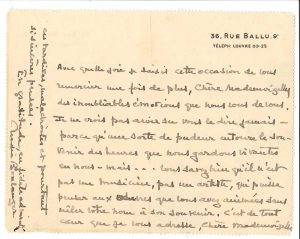 36, RUE BALLU. 9e
TÉLÉPH. LOUVRE 00-25
Avec quelle joie je saisis cette occasion de vous
remercier une fois de plus, Chère Mademoiselle,
des inoubliables émotions que nous vous devons.
Je ne crois pas avoir su vous le dire jamais —
parce qu'une sorte de pudeur entoure le sou-
venir des heures que nous gardons vivantes
en nous — mais . . . vous savez bien qu'il n'est
pas un musicien, pas un artiste, qui puisse
penser aux œuvres que vous avez animées sans
mêler votre nom à son souvenir. C'est de tout
cœur que je vous adresse, Chère Mademoiselle,
ces modiques maladroites et pourtant
si sincères pensées.
En gratitude,
Nadia Boulanger